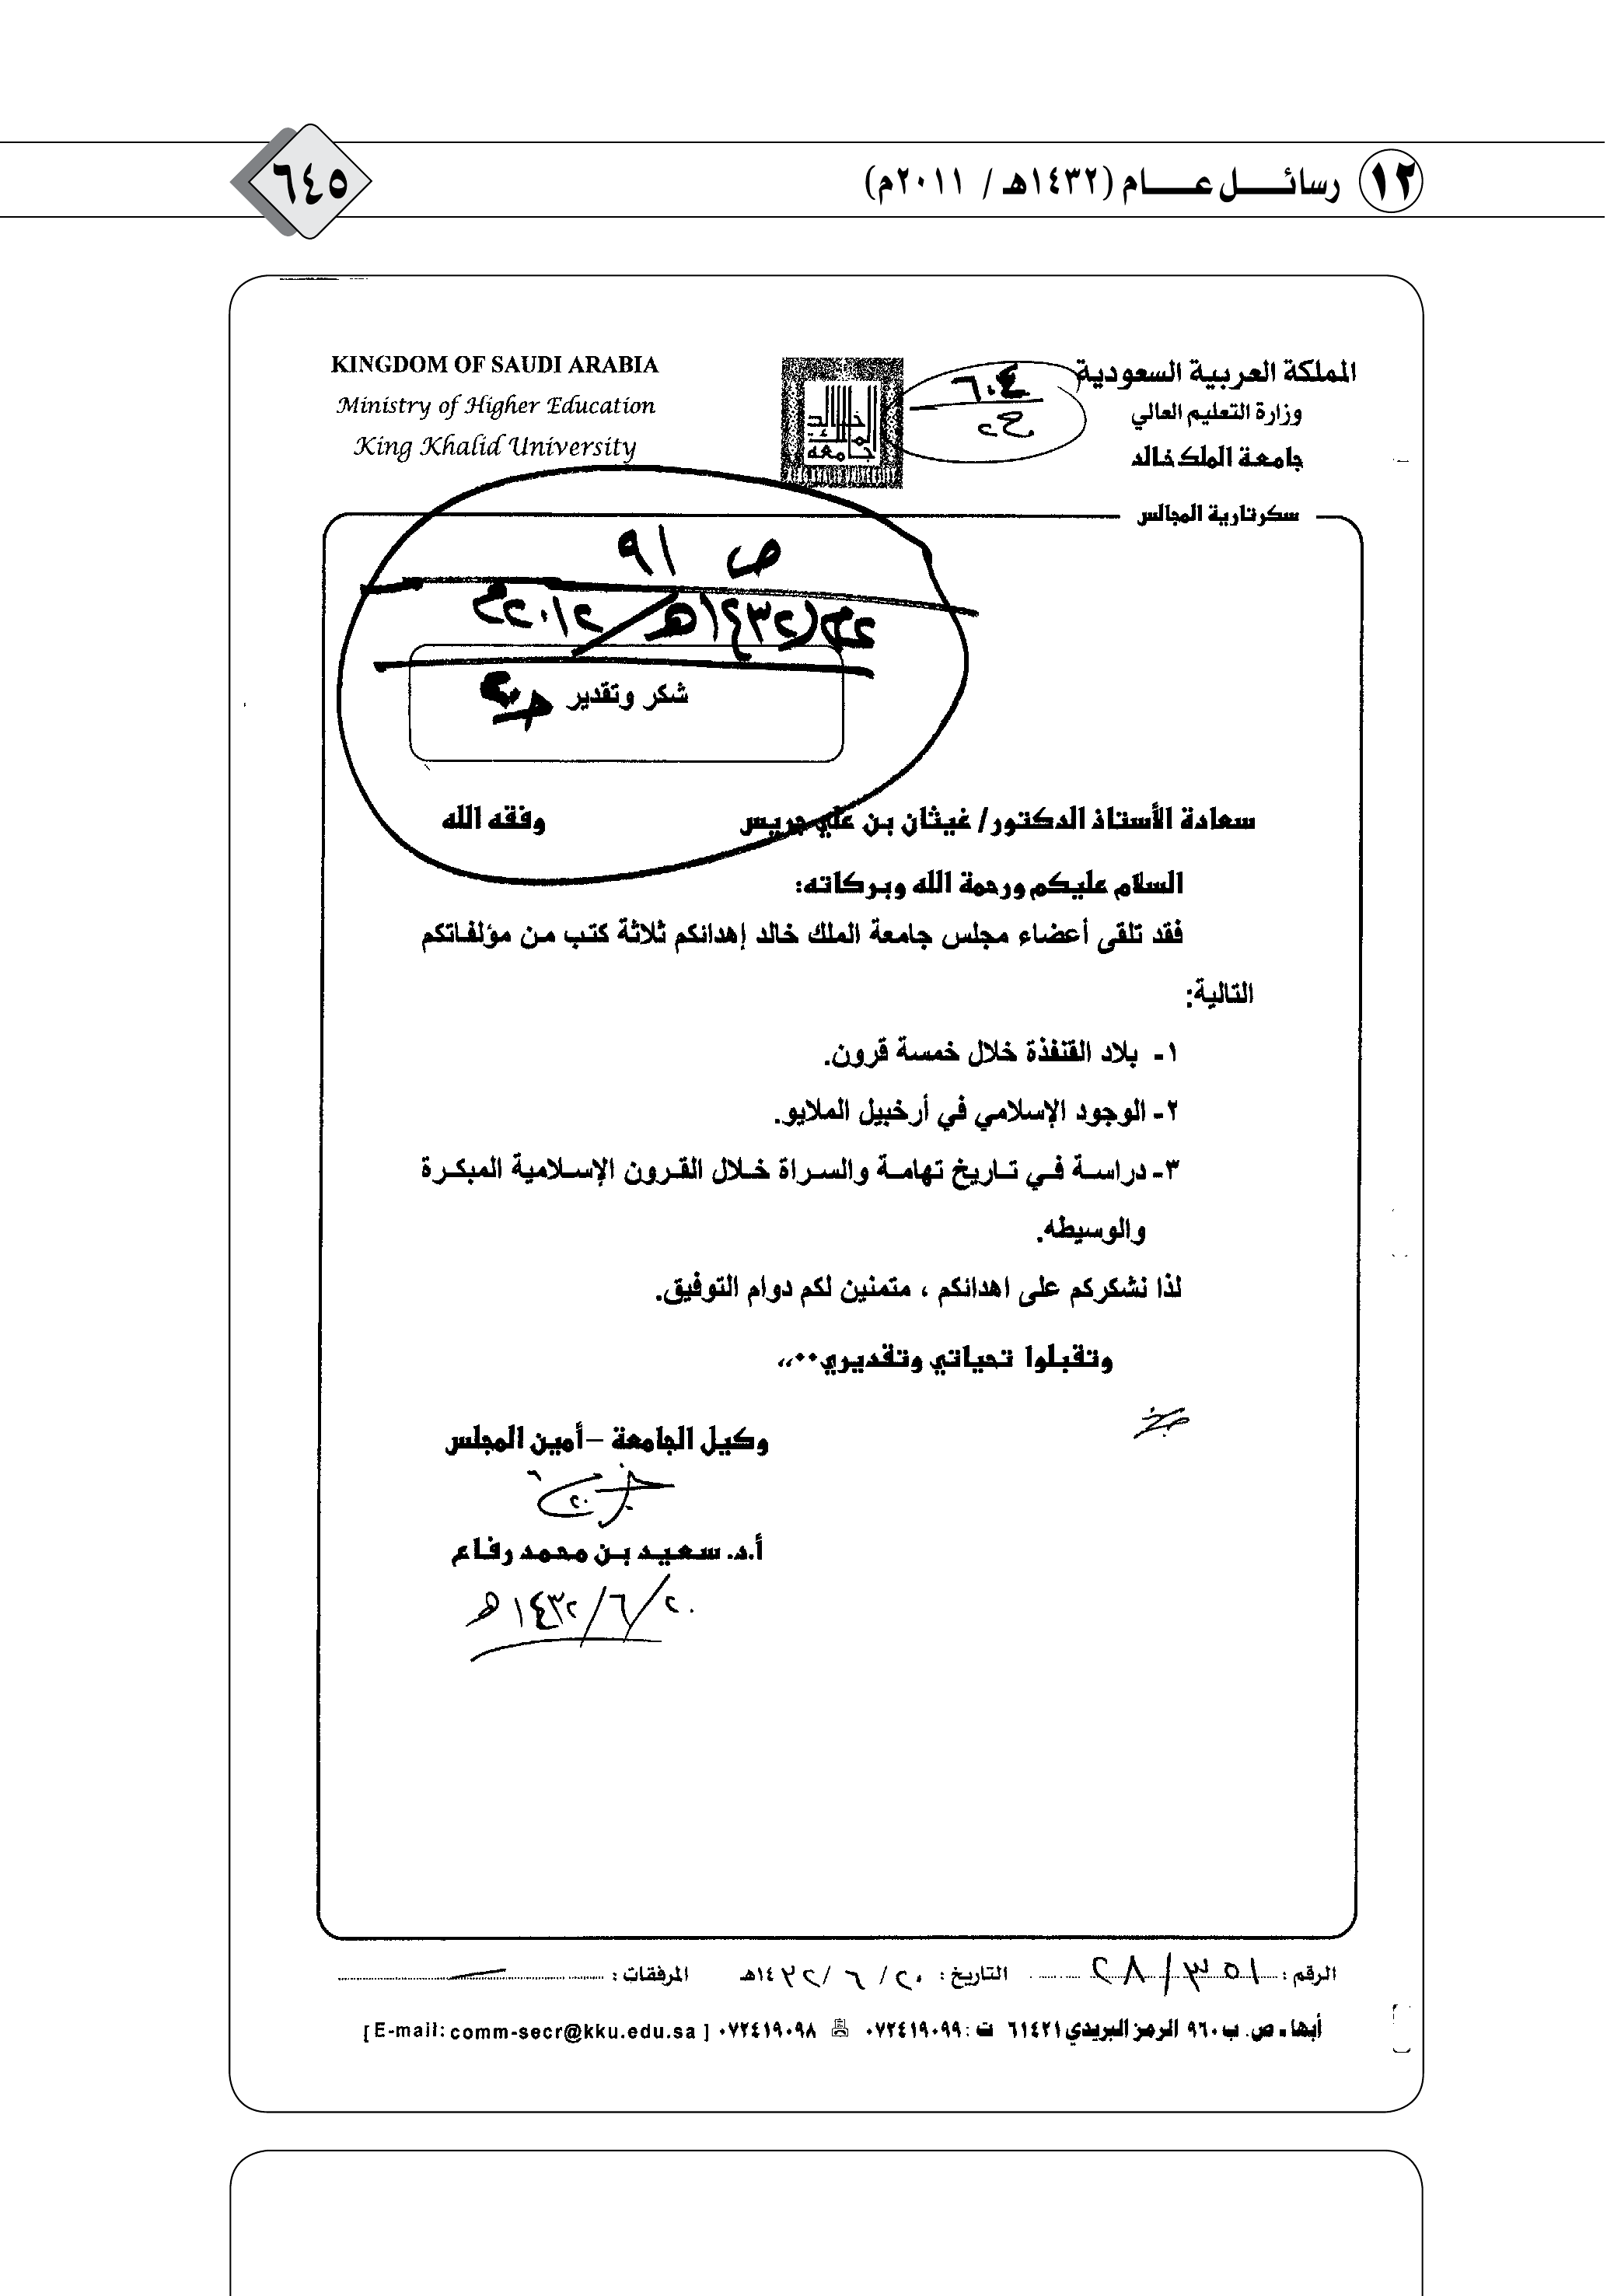 ١٢ رسائل عام (١٤٣٢هـ / ٢٠١١م)
٦٤٥
المملكة العربية السعودية
وزارة التعليم العالي
جامعة الملك خالد
٦٠٤
KINGDOM OF SAUDI ARABIA
Ministry of Higher Education
King Khalid University
جامعة الملك خالد
سكرتارية المجالس
ص ٩١
شكر وتقدير
سعادة الأستاذ الدكتور/ غيثان بن علي جريس وفقه الله
السلام عليكم ورحمة الله وبركاته:
فقد تلقى أعضاء مجلس جامعة الملك خالد إهدائكم ثلاثة كتب من مؤلفاتكم
التالية:
١- بلاد القنفذة خلال خمسة قرون.
٢- الوجود الإسلامي في أرخبيل الملايو.
٣- دراسة في تاريخ تهامة والسراة خلال القرون الإسلامية المبكرة
والوسيطه.
لذا نشكركم على اهدائكم ، متمنين لكم دوام التوفيق.
وتقبلوا تحياتي وتقديري٠٠،،
وكيل الجامعة – أمين المجلس
أ.د. سعيد بن محمد رفاع
٢٠/٦/١٤٣٢هـ
الرقم : ٢٨/٣٥١ التاريخ : ٢٠/ ٦ /١٤٣٢هـ المرفقات :
أبها - ص. ب ٩٦٠ الرمز البريدي ٦١٤٢١ ت : ٠٧٢٤١٩٠٩٩ ٠٧٢٤١٩٠٩٨ [ E-mail: comm-secr@kku.edu.sa ]